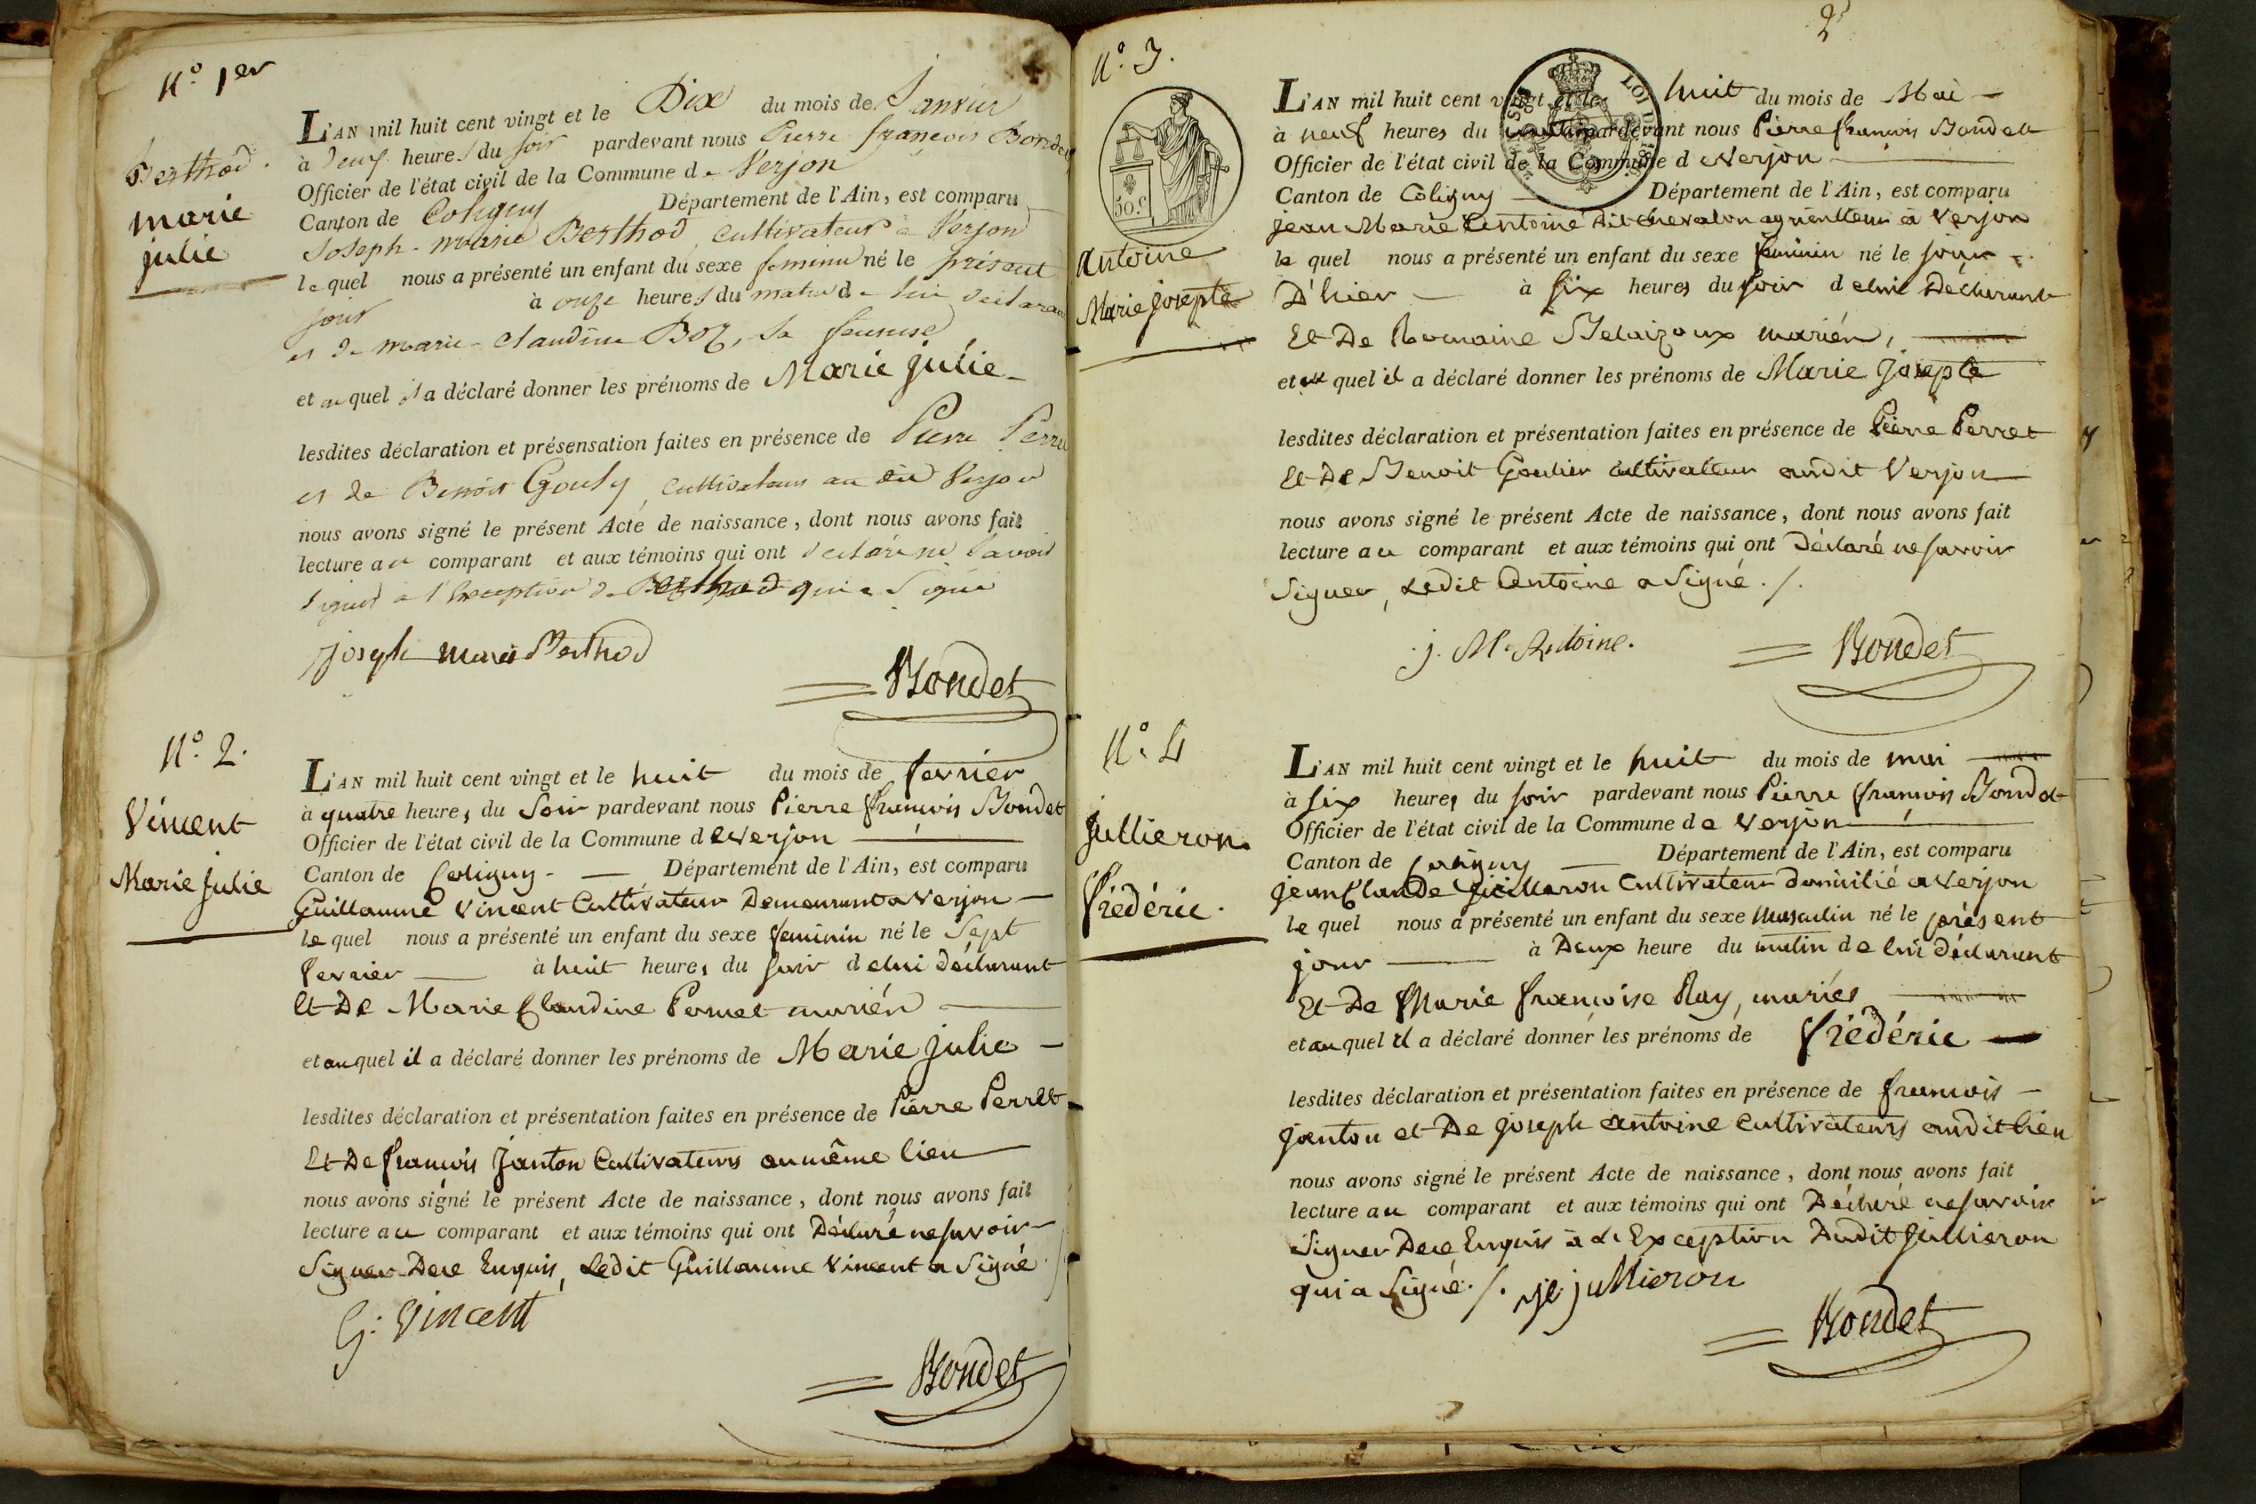 N.º 1er
Berthod.
marie
julie
L'AN mil huit cent vingt et le Dix du mois de Janvier
à deux heures du soir pardevant nous Pierre françois Bondet
Officier de l'état civil de la Commune de Verjon
Canton de Coligny Département de l'Ain, est comparu
Joseph-marie Berthod, cultivateur à Verjon
lequel nous a présenté un enfant du sexe feminin né le présent
jour à onze heures du matin de lui déclarant
et de marie-claudine Boz, sa femme
et auquel il a déclaré donner les prénoms de Marie julie
lesdites déclaration et présensation faites en présence de Pierre Perret
et de Benoit Gouly, cultivateurs au dit Verjon
nous avons signé le présent Acte de naissance, dont nous avons fait
lecture au comparant et aux témoins qui ont déclaré ne savoir
signer à l'exception de Berthod qui a signé
joseph marie Berthod
Bondet
N.º 2.
Vincent
Marie Julie
L'AN mil huit cent vingt et le huit du mois de fevrier
à quatre heures du Soir pardevant nous Pierre françois Bondet
Officier de l'état civil de la Commune de Verjon
Canton de Coligny- Département de l'Ain, est comparu
Guillaume Vincent Cultivateur Demeurant a Verjon
lequel nous a présenté un enfant du sexe feminin né le Sept
fevrier à huit heures du soir de lui déclarant
Et De Marie Claudine Pernet mariés
et auquel il a déclaré donner les prénoms de Marie julie
lesdites déclaration et présentation faites en présence de Pierre Perret
Et De françois Janton Cultivateurs au même lieu
nous avons signé le présent Acte de naissance, dont nous avons fait
lecture au comparant et aux témoins qui ont Déclaré ne savoir
Signer Dece Enquis, Ledit Guillaume Vincent a Signé
G. Vincent
Bondet
2
N.º 3.
50.c
Antoine
Marie josepte
L'AN mil huit cent vingt et le huit du mois de Mai
à neuf heures du matin pardevant nous Pierre françois Bondet
Officier de l'état civil de la Commune de Verjon
Canton de Coligny Département de l'Ain, est comparu
jean Marie Antoine dit chevalon agriculteur à Verjon
lequel nous a présenté un enfant du sexe feminin né le jour
D'hier à six heures du soir de lui Déclarant
Et De Romaine Belaizoux mariés,
et auquel il a déclaré donner les prénoms de Marie Josepte
lesdites déclaration et présentation faites en présence de Pierre Perret
Et De Benoit Goulier cultivateur audit Verjon
nous avons signé le présent Acte de naissance, dont nous avons fait
lecture au comparant et aux témoins qui ont Déclaré ne savoir
Signer, Ledit Antoine a Signé ./.
j. M. Antoine.
Bondet
N.º 4
Jullieron
Frédéric.
L'AN mil huit cent vingt et le huit du mois de mai
à six heures du soir pardevant nous Pierre françois Bondet
Officier de l'état civil de la Commune de Verjon
Canton de Coligny Département de l'Ain, est comparu
jean Claude Jullieron Cultivateur domicilié a Verjon
lequel nous a présenté un enfant du sexe Masculin né le présent
jour à Deux heure du matin de lui déclarant
Et De Marie françoise Ray, mariés
et auquel il a déclaré donner les prénoms de Frédéric
lesdites déclaration et présentation faites en présence de françois
janton et De joseph antoine cultivateurs audit lieu
nous avons signé le présent Acte de naissance, dont nous avons fait
lecture au comparant et aux témoins qui ont Déclaré ne savoir
Signer Dece Enquis à L'Exception Dudit Jullieron
qui a Signé ./. jc jullieron
Bondet